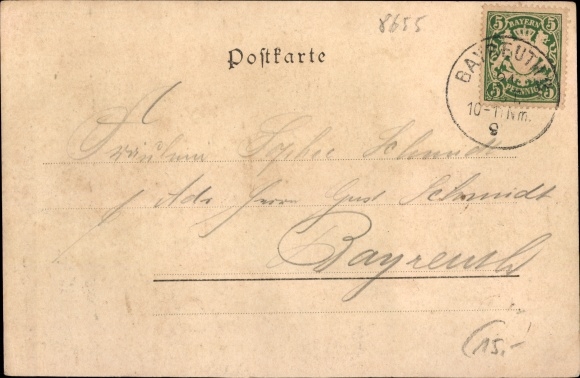 8655
Postkarte
5 BAYERN 5
5 PFENNIG 5
BAYREUTH
10-11 Nm.
Fräulein Sophie Schmidt
Adr Herrn Gust Schmidt
Bayreuth
15.-